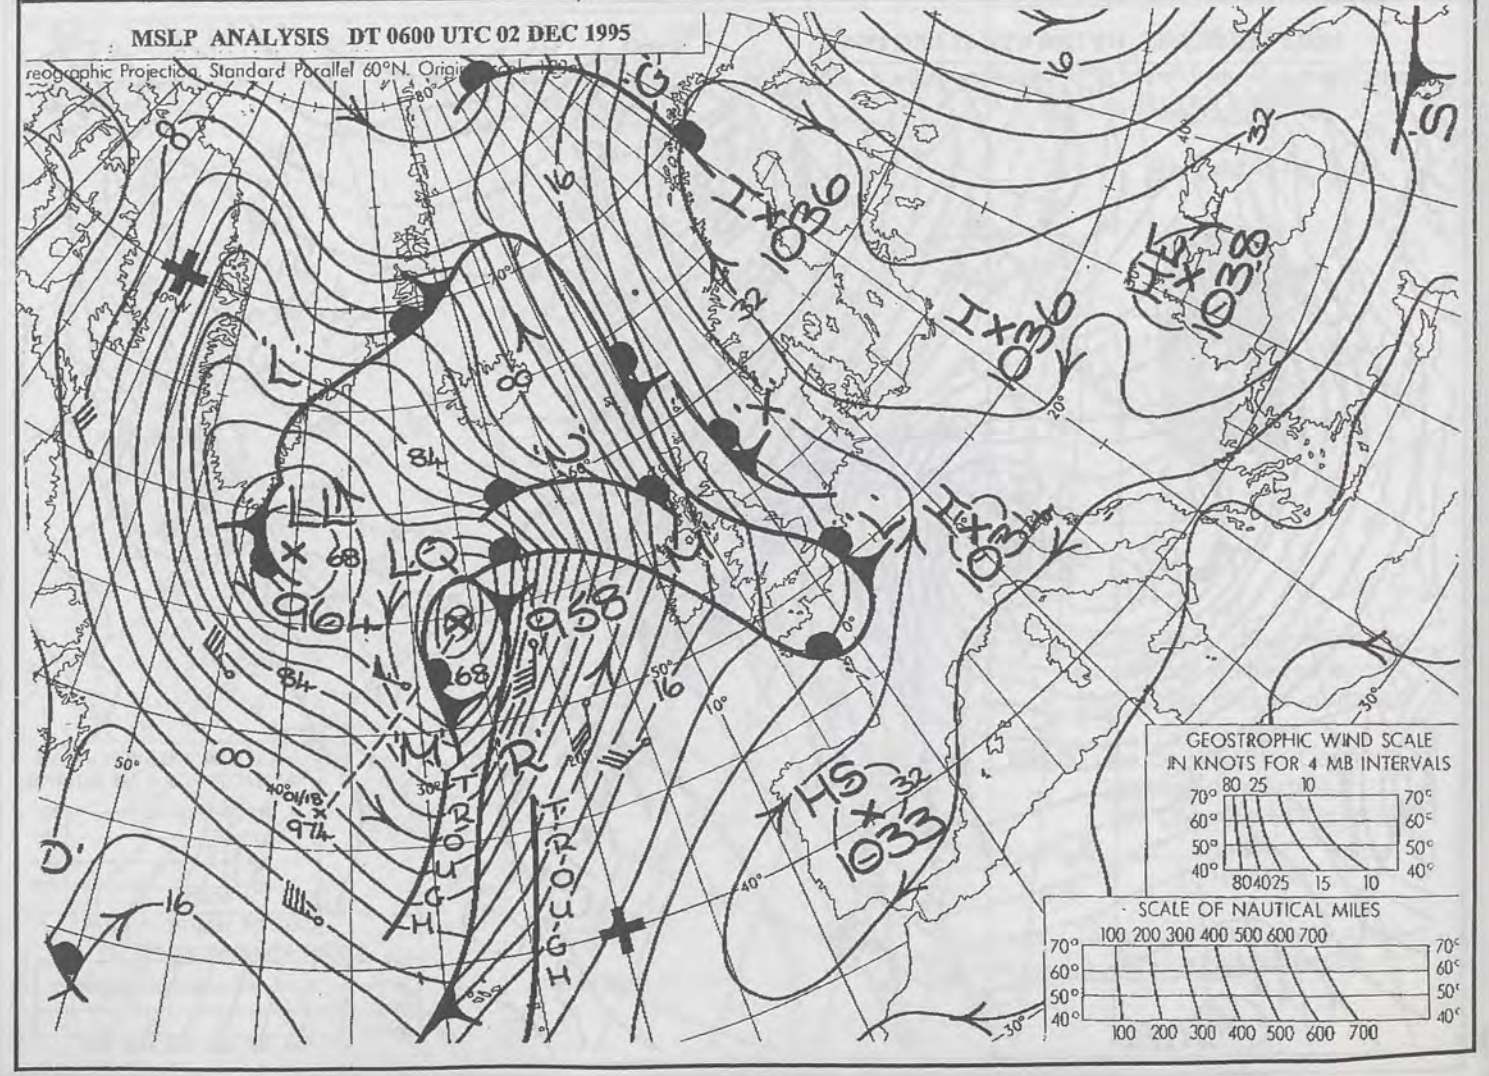 MSLP ANALYSIS DT 0600 UTC 02 DEC 1995
reographic Projection, Standard Parallel 60°N.
80°
'G'
16
8
16
32
40°
'S'
H
1036
32
H
1036
1038
20°
70°
'L'
8
'X'
84
60°
'U'
68
LQ
964
958
H
1031
0°
68
84
50°
16
10°
'M'
'R'
8
50°
40°
01/18
974
30°
TROUGH
TROUGH
HS
32
1033
40°
'D'
16
30°
30°
GEOSTROPHIC WIND SCALE
IN KNOTS FOR 4 MB INTERVALS
80 25 10
70° 70°
60° 60°
50° 50°
40° 40°
80 40 25 15 10
SCALE OF NAUTICAL MILES
100 200 300 400 500 600 700
70° 70°
60° 60°
50° 50°
40° 40°
100 200 300 400 500 600 700